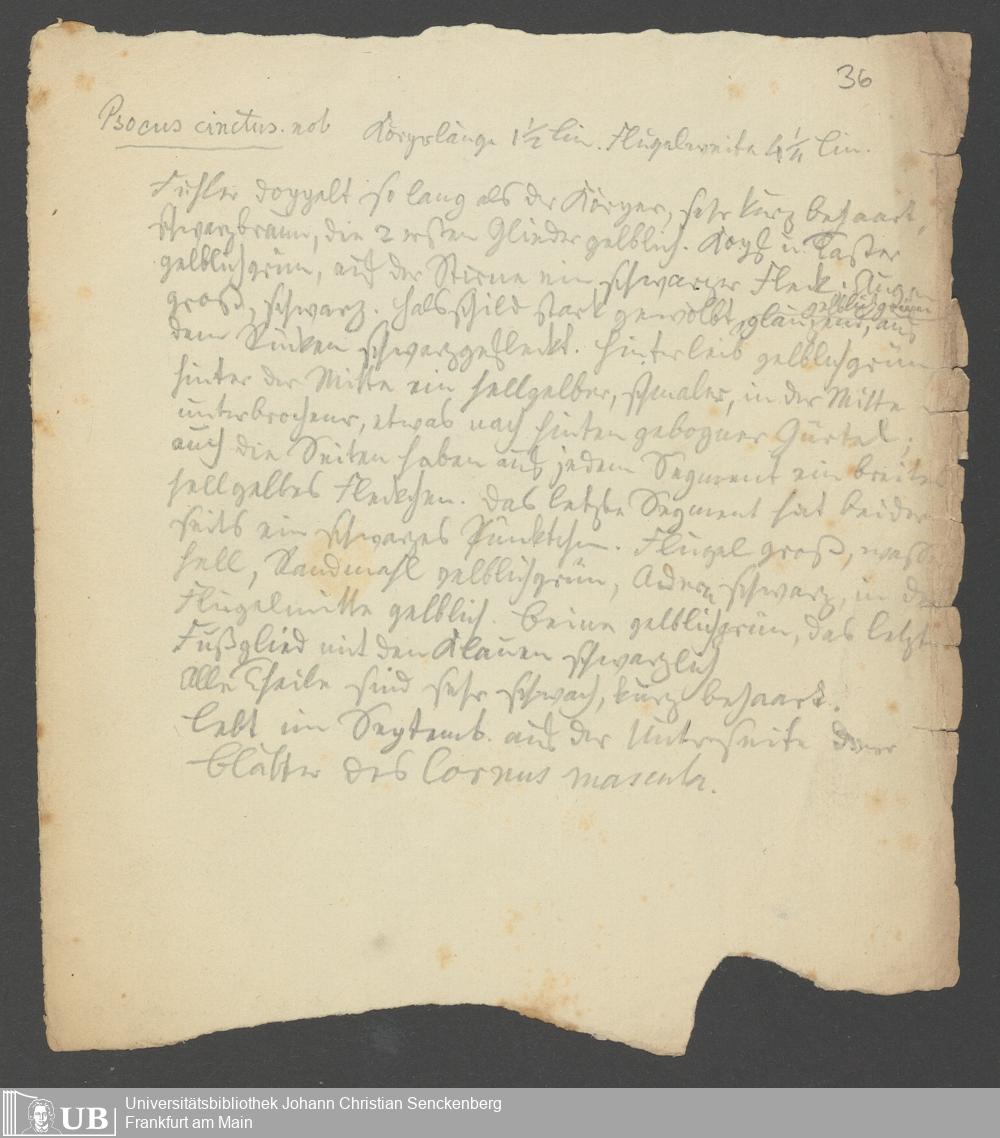 36
Psocus cinctus. nob Körperlänge 1 1/2 Lin. Flügelweite 4 1/4 Lin.
Fühler doppelt so lang als der Körper, sehr kurz behaart,
schwarzbraun, die 2 ersten Glieder gelblich. Kopf u. Taster
gelblichgrün, auf der Stirne ein schwarzer Fleck. Augen
gelblichgrün
groß, schwarz. Halsschild stark gewölbt, glänzend, auf
dem Rücken schwarzgefleckt. Hinterleib gelblichgrün,
hinter der Mitte ein hellgelber, schmaler, in der Mitte
unterbrochener, etwas nach hinten gebogner Gürtel;
auch die Seiten haben auf jedem Segment ein breites
hellgelbes Fleckchen. Das letzte Segment hat beider
seits ein schwarzes Pünktchen. Flügel groß,
hell, Randmahl gelblichgrün, Adern schwarz, in der
Flügelmitte gelblich. Beine gelblichgrün, das letzte
Fußglied mit den Klauen schwärzlich
Alle Theile sind sehr schwach, kurz behaart.
Lebt im Septemb. auf der Unterseite der
Blätter des Cornus mascula.
UB
Universitätsbibliothek Johann Christian Senckenberg
Frankfurt am Main